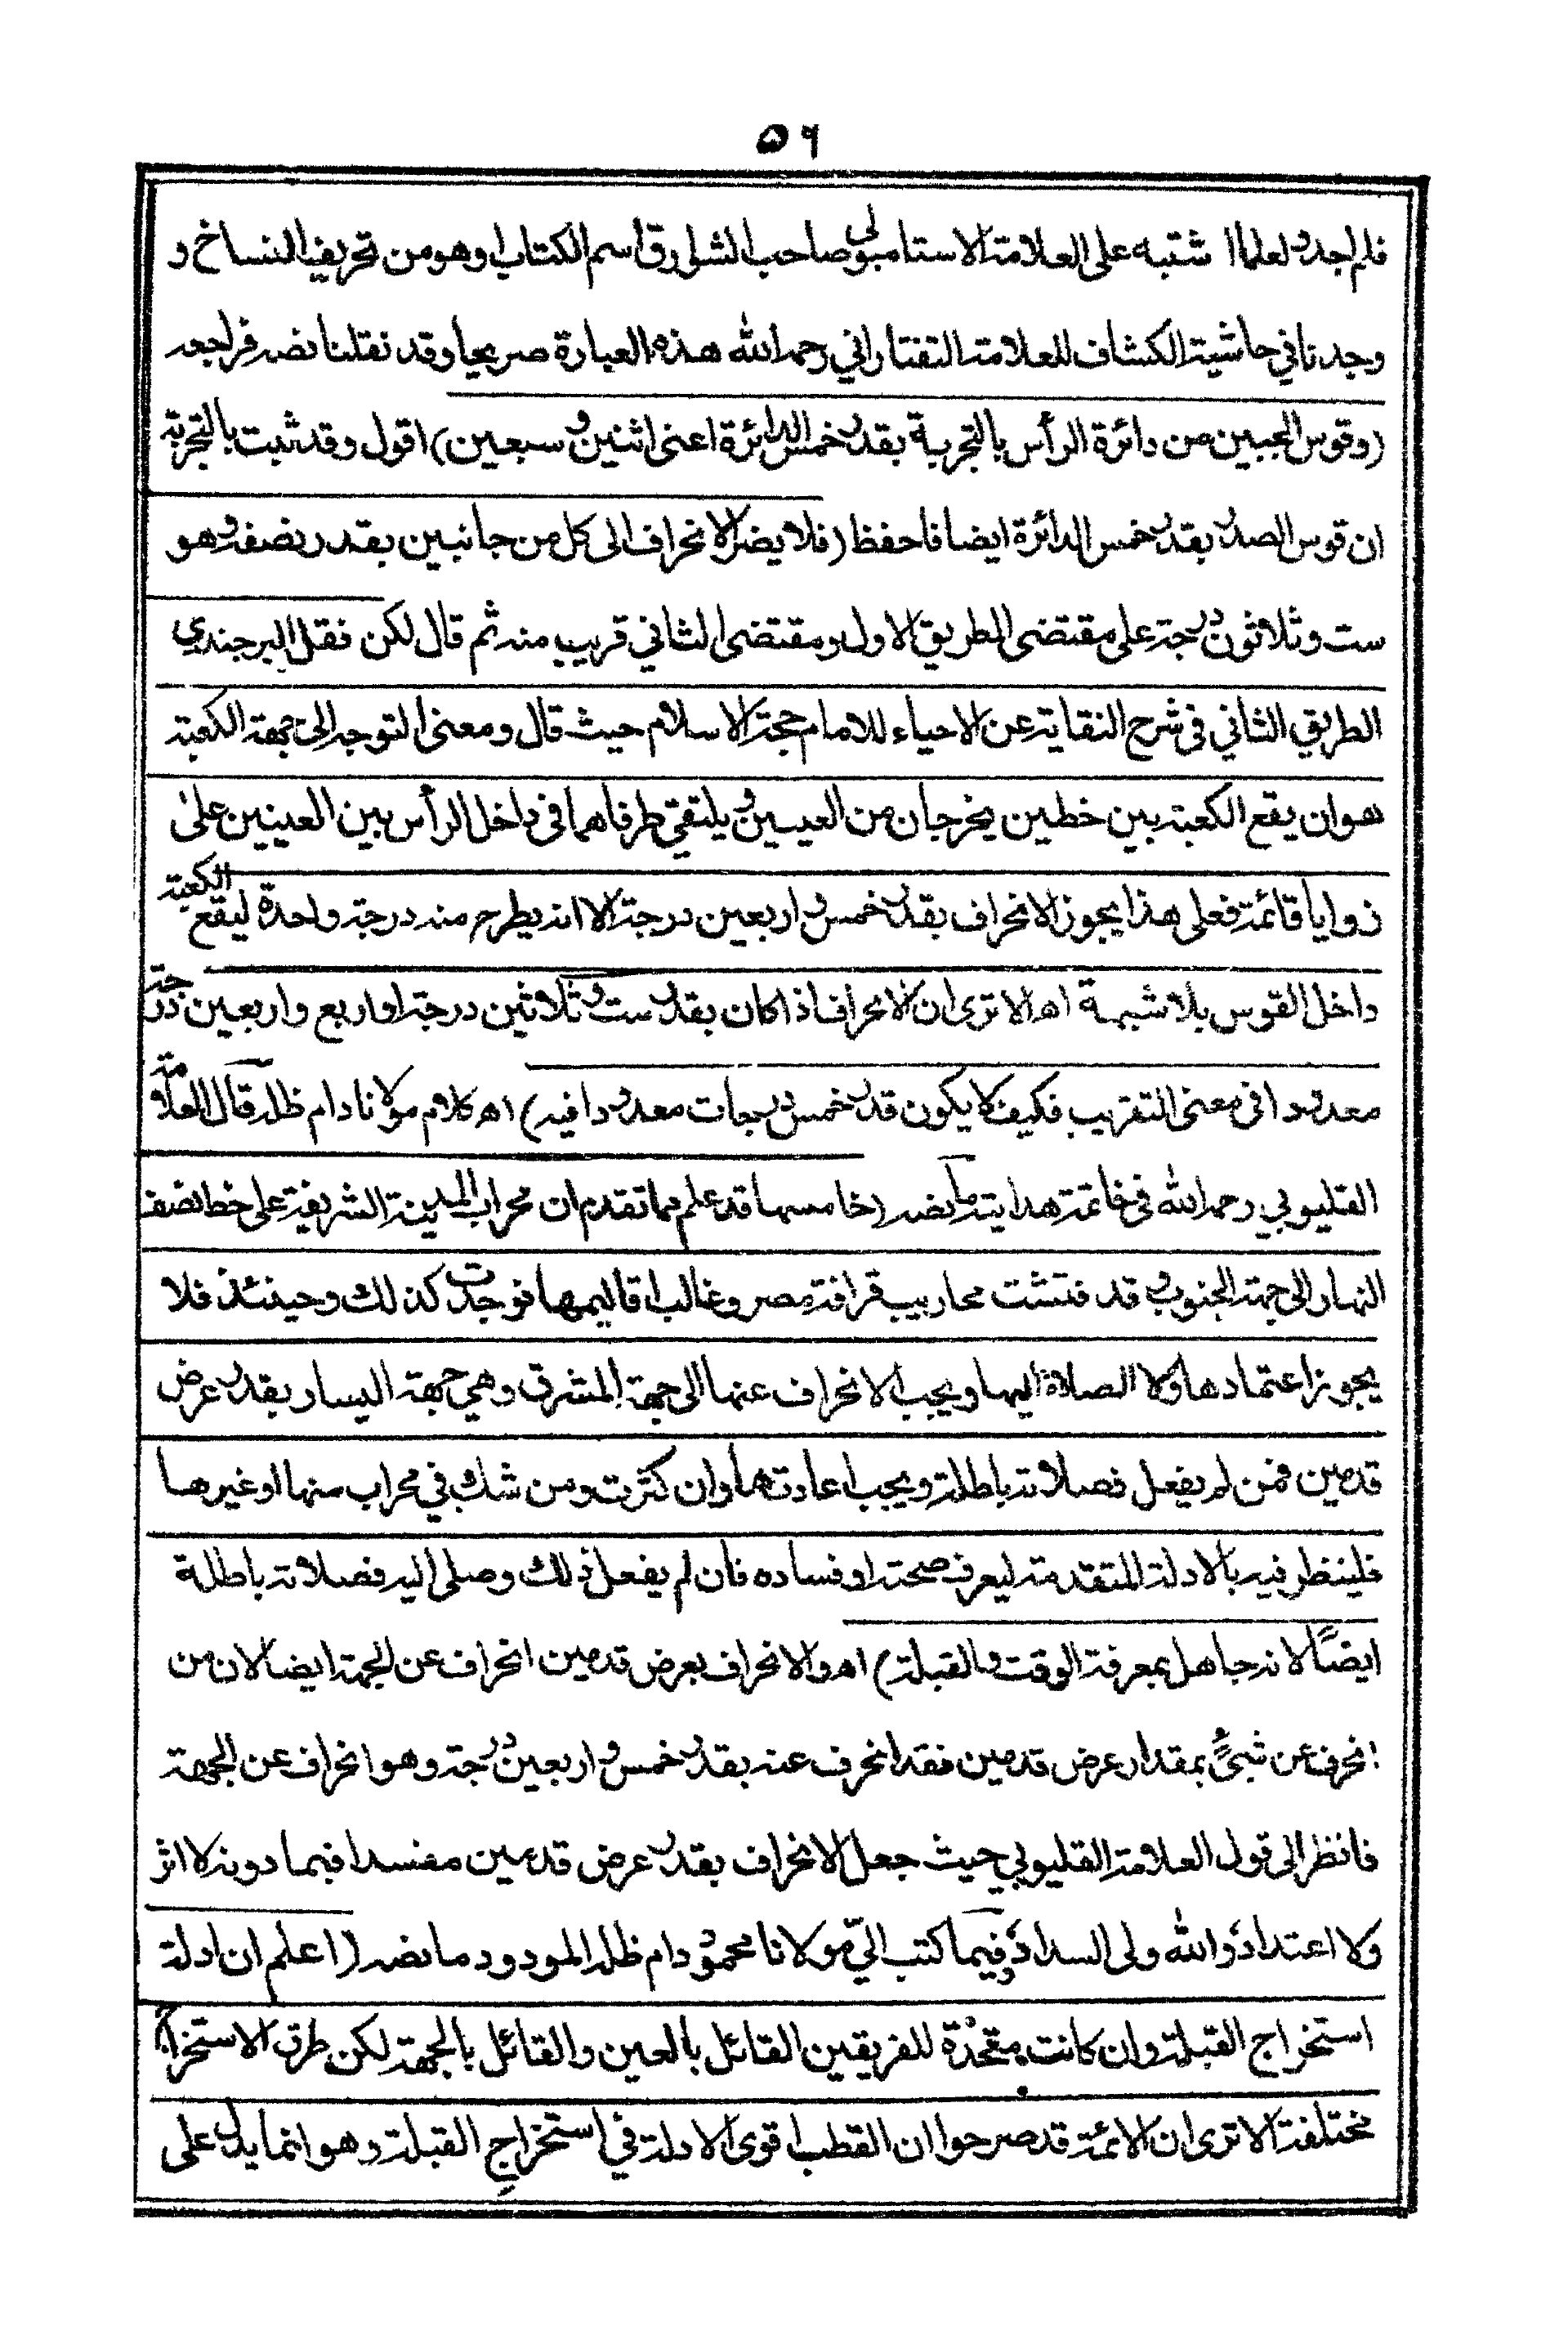 ٥٦
فلم اجد ولعلما اشتبه على العلامة الاستامبولي صاحب الشوارق اسم الكتاب وهو من تحريف النساخ و
وجدنا في حاشية الكشاف للعلامة التفتازاني رحمه الله هذه العبارة صريحا وقد نقلنا نصه فراجعه
(وقوس الجبين من دائرة الرأس بالتجربة بقدر خمس الدائرة اعنى اثنين و سبعين) اقول وقد ثبت بالتجربة
ان قوس الصدر بقدر خمس الدائرة ايضا فاحفظ (فلا يضر الانحراف الى كل من جانبين بقدر نصفه وهو
ست وثلاثون درجة على مقتضى الطريق الاول ومقتضى الثاني قريب منه ثم قال لكن نقل البرجندي
الطريق الثاني فى شرح النقاية عن الاحياء للامام حجة الاسلام حيث قال ومعنى التوجه الى جهة الكعبة
هو ان يقع الكعبة بين خطين يخرجان من العينين و يلتقي طرفاهما فى داخل الرأس بين العينين على
زوايا قائمة فعلى هذا يجوز الانحراف بقدر خمس و اربعين درجة الا انه يطرح منه درجة واحدة ليقع الكعبة
داخل القوس بلا شبهة اه الا ترى ان الانحراف اذا كان بقدر ست و ثلاثين درجة او اربع واربعين درجة
معدودا فى معنى التقريب فكيف لا يكون قدر خمس درجات معدودا فيه) اه كلام مولانا دام ظله قال العلامة
القليوبي رحمه الله فى خاتمة هدايته ما نصه (خامسها قد علم مما تقدم ان محراب المدينة الشريفة على خط نصف
النهار الى جهة الجنوب و قد فتشت محاريب قرافة مصر وغالب اقاليمها فوجدت كذلك وحينئذ فلا
يجوز اعتمادها ولا الصلاة اليها ويجب الانحراف عنها الى جهة المشرق وهي جهة اليسار بقدر عرض
قدمين فمن لم يفعل فصلاته باطلة ويجب اعادتها وان كثرت ومن شك في محراب منها او غيرها
فلينظر فيه بالادلة المتقدمة ليعرف صحته او فساده فان لم يفعل ذلك وصلى اليه فصلاته باطلة
ايضًا لانه جاهل بمعرفة الوقت والقبلة) اه والانحراف بعرض قدمين انحراف عن الجهة ايضا لان من
انحرف عن شيئٍ بمقدار عرض قدمين فقد انحرف عنه بقدر خمس و اربعين درجة وهو انحراف عن الجهة
فانظر الى قول العلامة القليوبي حيث جعل الانحراف بقدر عرض قدمين مفسدا فيما دونه لا اثر
ولا اعتداد والله ولى السداد وفيما كتب اليّ مولانا محمود دام ظله المودود ما نصه (اعلم ان ادلة
استخراج القبلة وان كانت متحدة للفريقين القائل بالعين والقائل بالجهة لكن طرق الاستخراج
مختلفة الا ترى ان الائمة قد صرحوا ان القطب اقوى الادلة في استخراج القبلة وهو انما يدل على